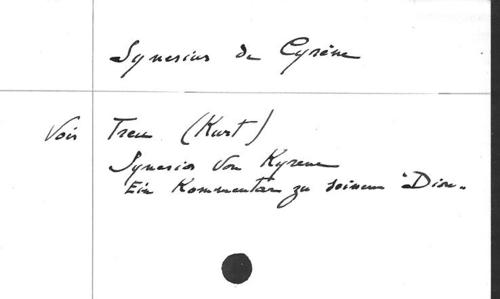 Synesius de Cyrène
Voir Treu (Kurt)
Synesios von Kyrene
Ein Kommentar zu seinem "Dion"